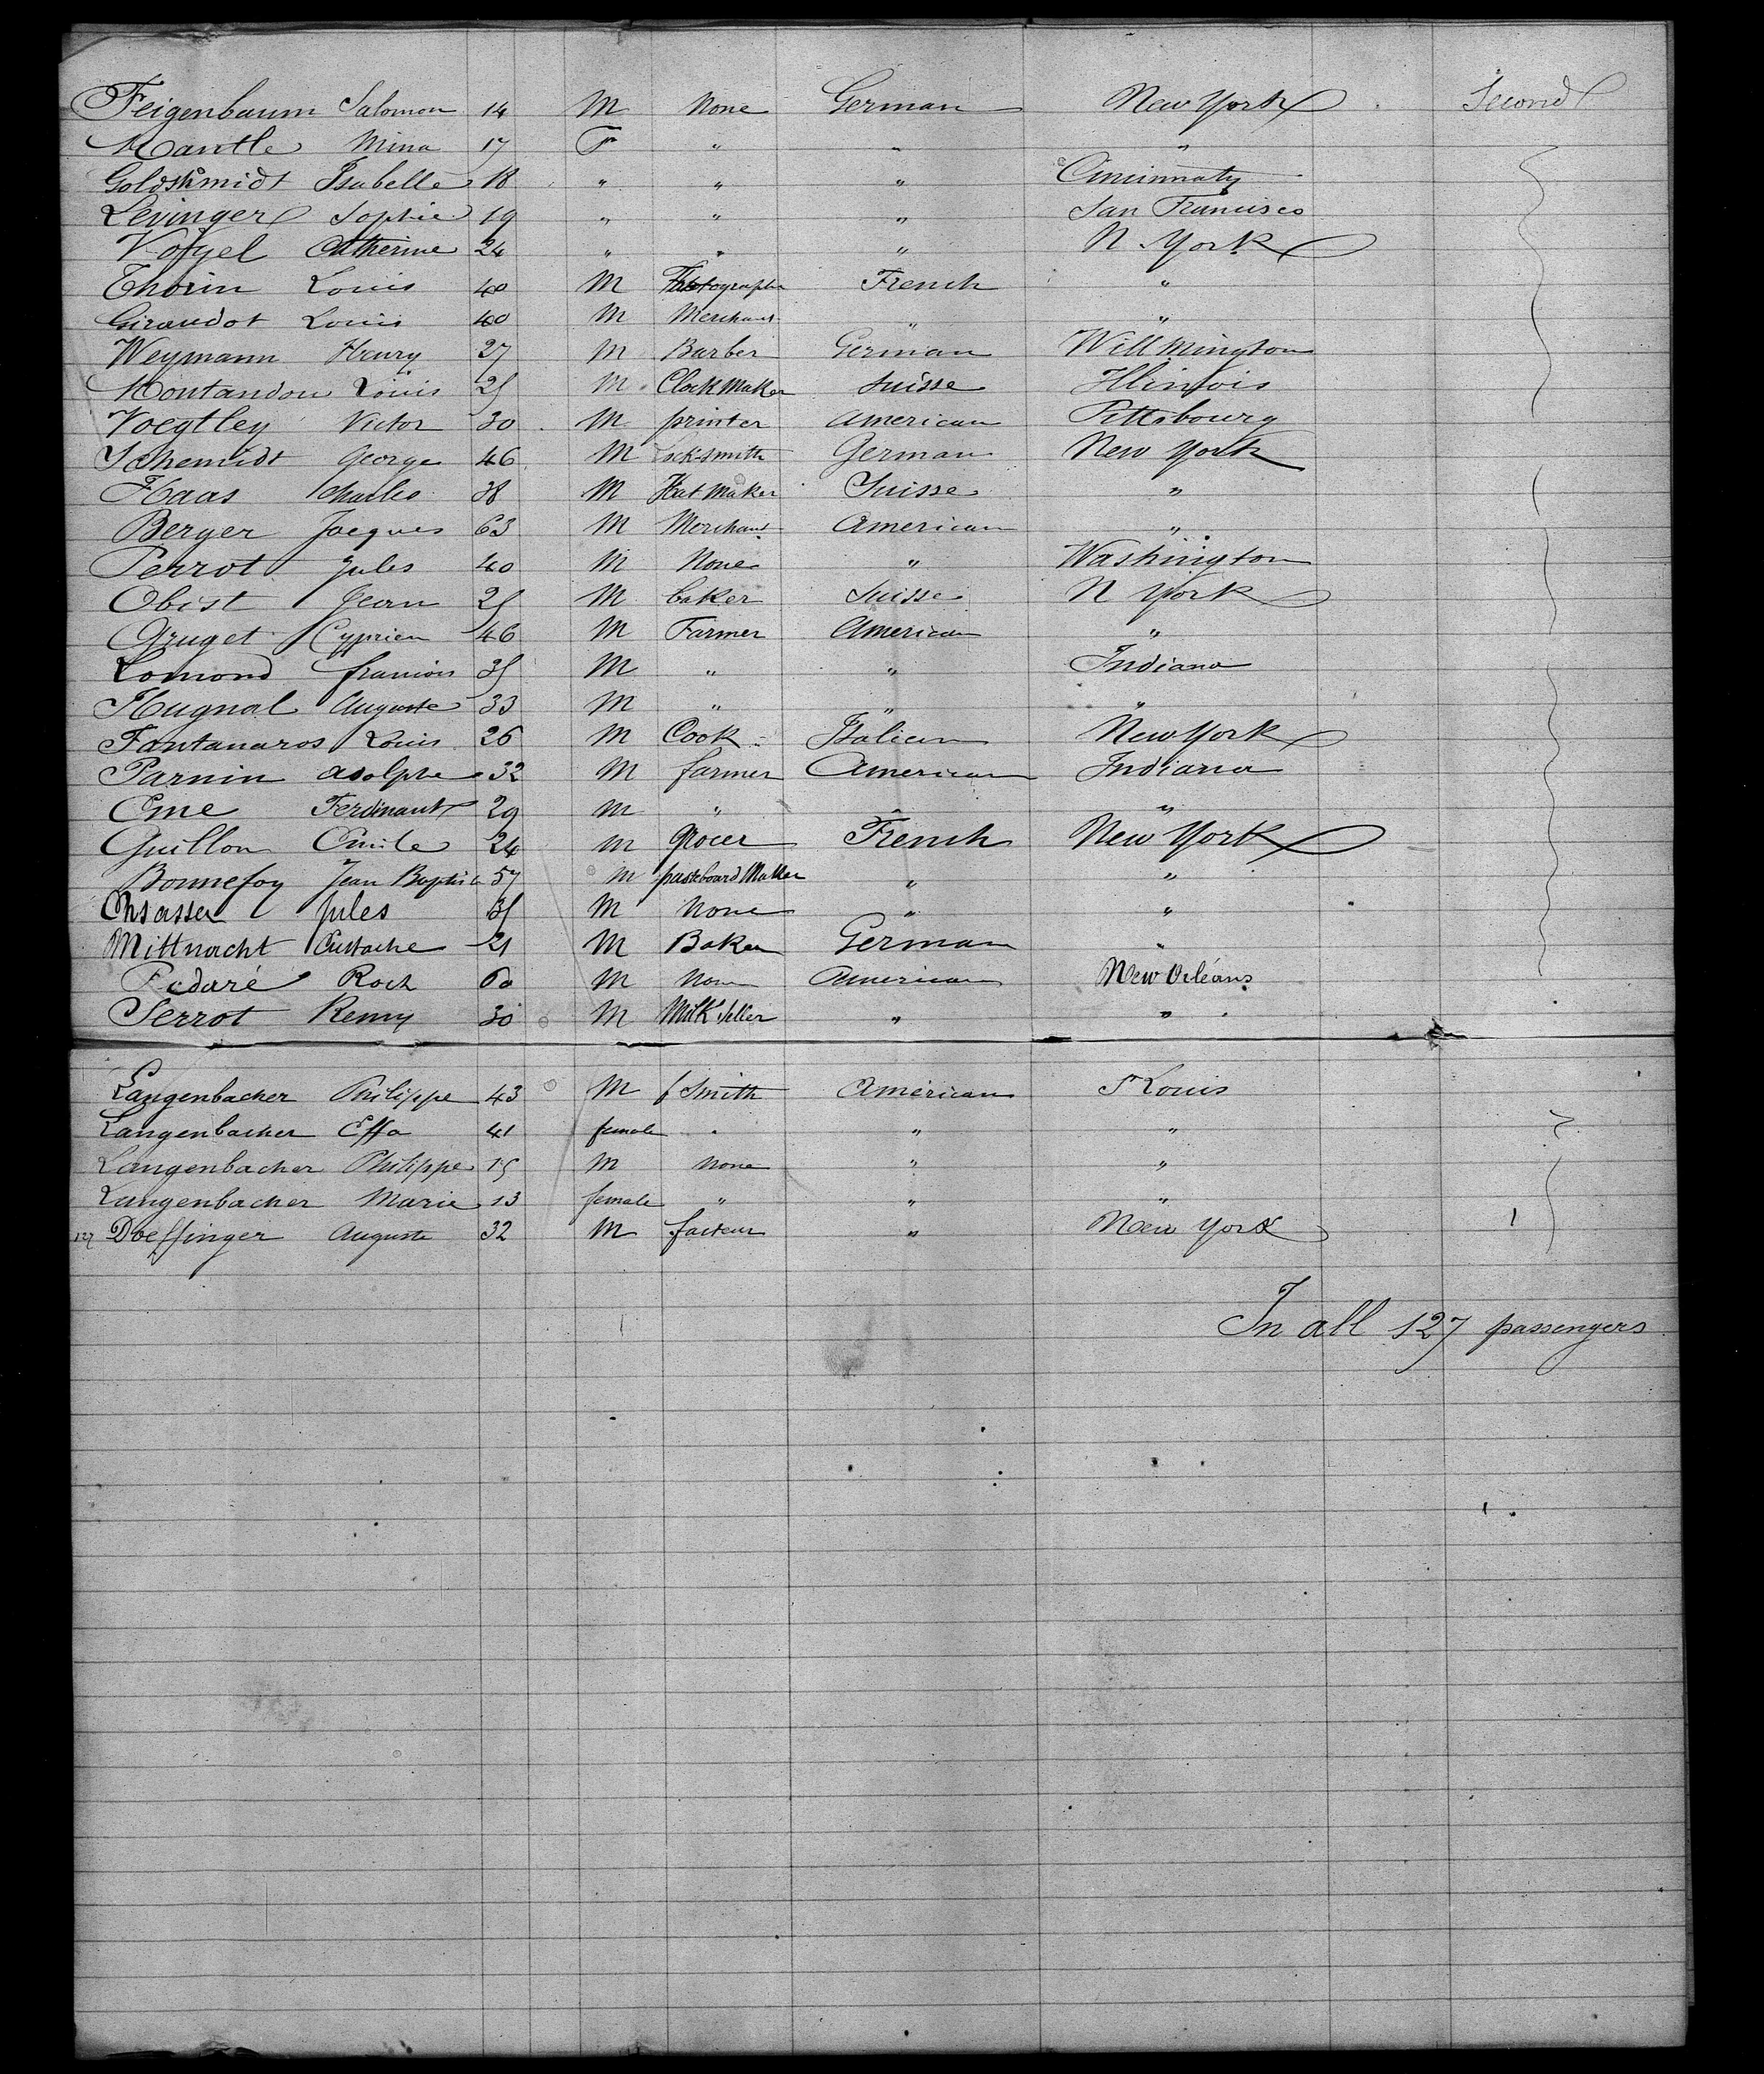 Feigenbaum Salomon 14 M None German New York Second
Mantle Mina 17 F " " "
Goldshmidt Isabelle 18 " " " Cincinnaty
Levinger Sophie 19 " " " San Francisco
Vogel Catherine 24 " " " N. York
Thorin Louis 40 M Photographe French "
Giraudot Louis 40 M Merchant " "
Weymann Henry 27 M Barber German Willmington
Montandon Louis 25 M Clock Maker Suisse Illinois
Voegtley Victor 30 M printer American Pittsbourg
Schemidt George 46 M Lock-smith German New York
Haas Charles 38 M Hat Maker Suisse "
Berger Jacques 63 M Merchant American "
Perrot Jules 40 M None " Washington
Obist Jean 25 M baker Suisse N York
Gruget Cyprien 46 M Farmer American "
Lomond francois 35 M " " Indiana
Hugnal Auguste 33 M " " "
Fantanaros Louis 26 M Cook Italian New York
Parnin Adolphe 32 M farmer American Indiana
Eme Ferdinant 29 M " " "
Guillon Emile 24 M Grocer French New York
Bonnefoy Jean Baptis 57 M pastboard Maker " "
Jules 35 M None " "
Mittnacht Eustache 21 M Baker German "
Fedaré Roch 60 M None American New Orléans
Perrot Remy 30 M Milk Seller " "
Langenbacher Philippe 43 M Smith American St Louis
Langenbacher Effa 41 female " " "
Langenbacher Philippe 15 M None " "
Langenbacher Marie 13 female " " "
127 Doeffinger Auguste 32 M facteur " New York
In all 127 passengers